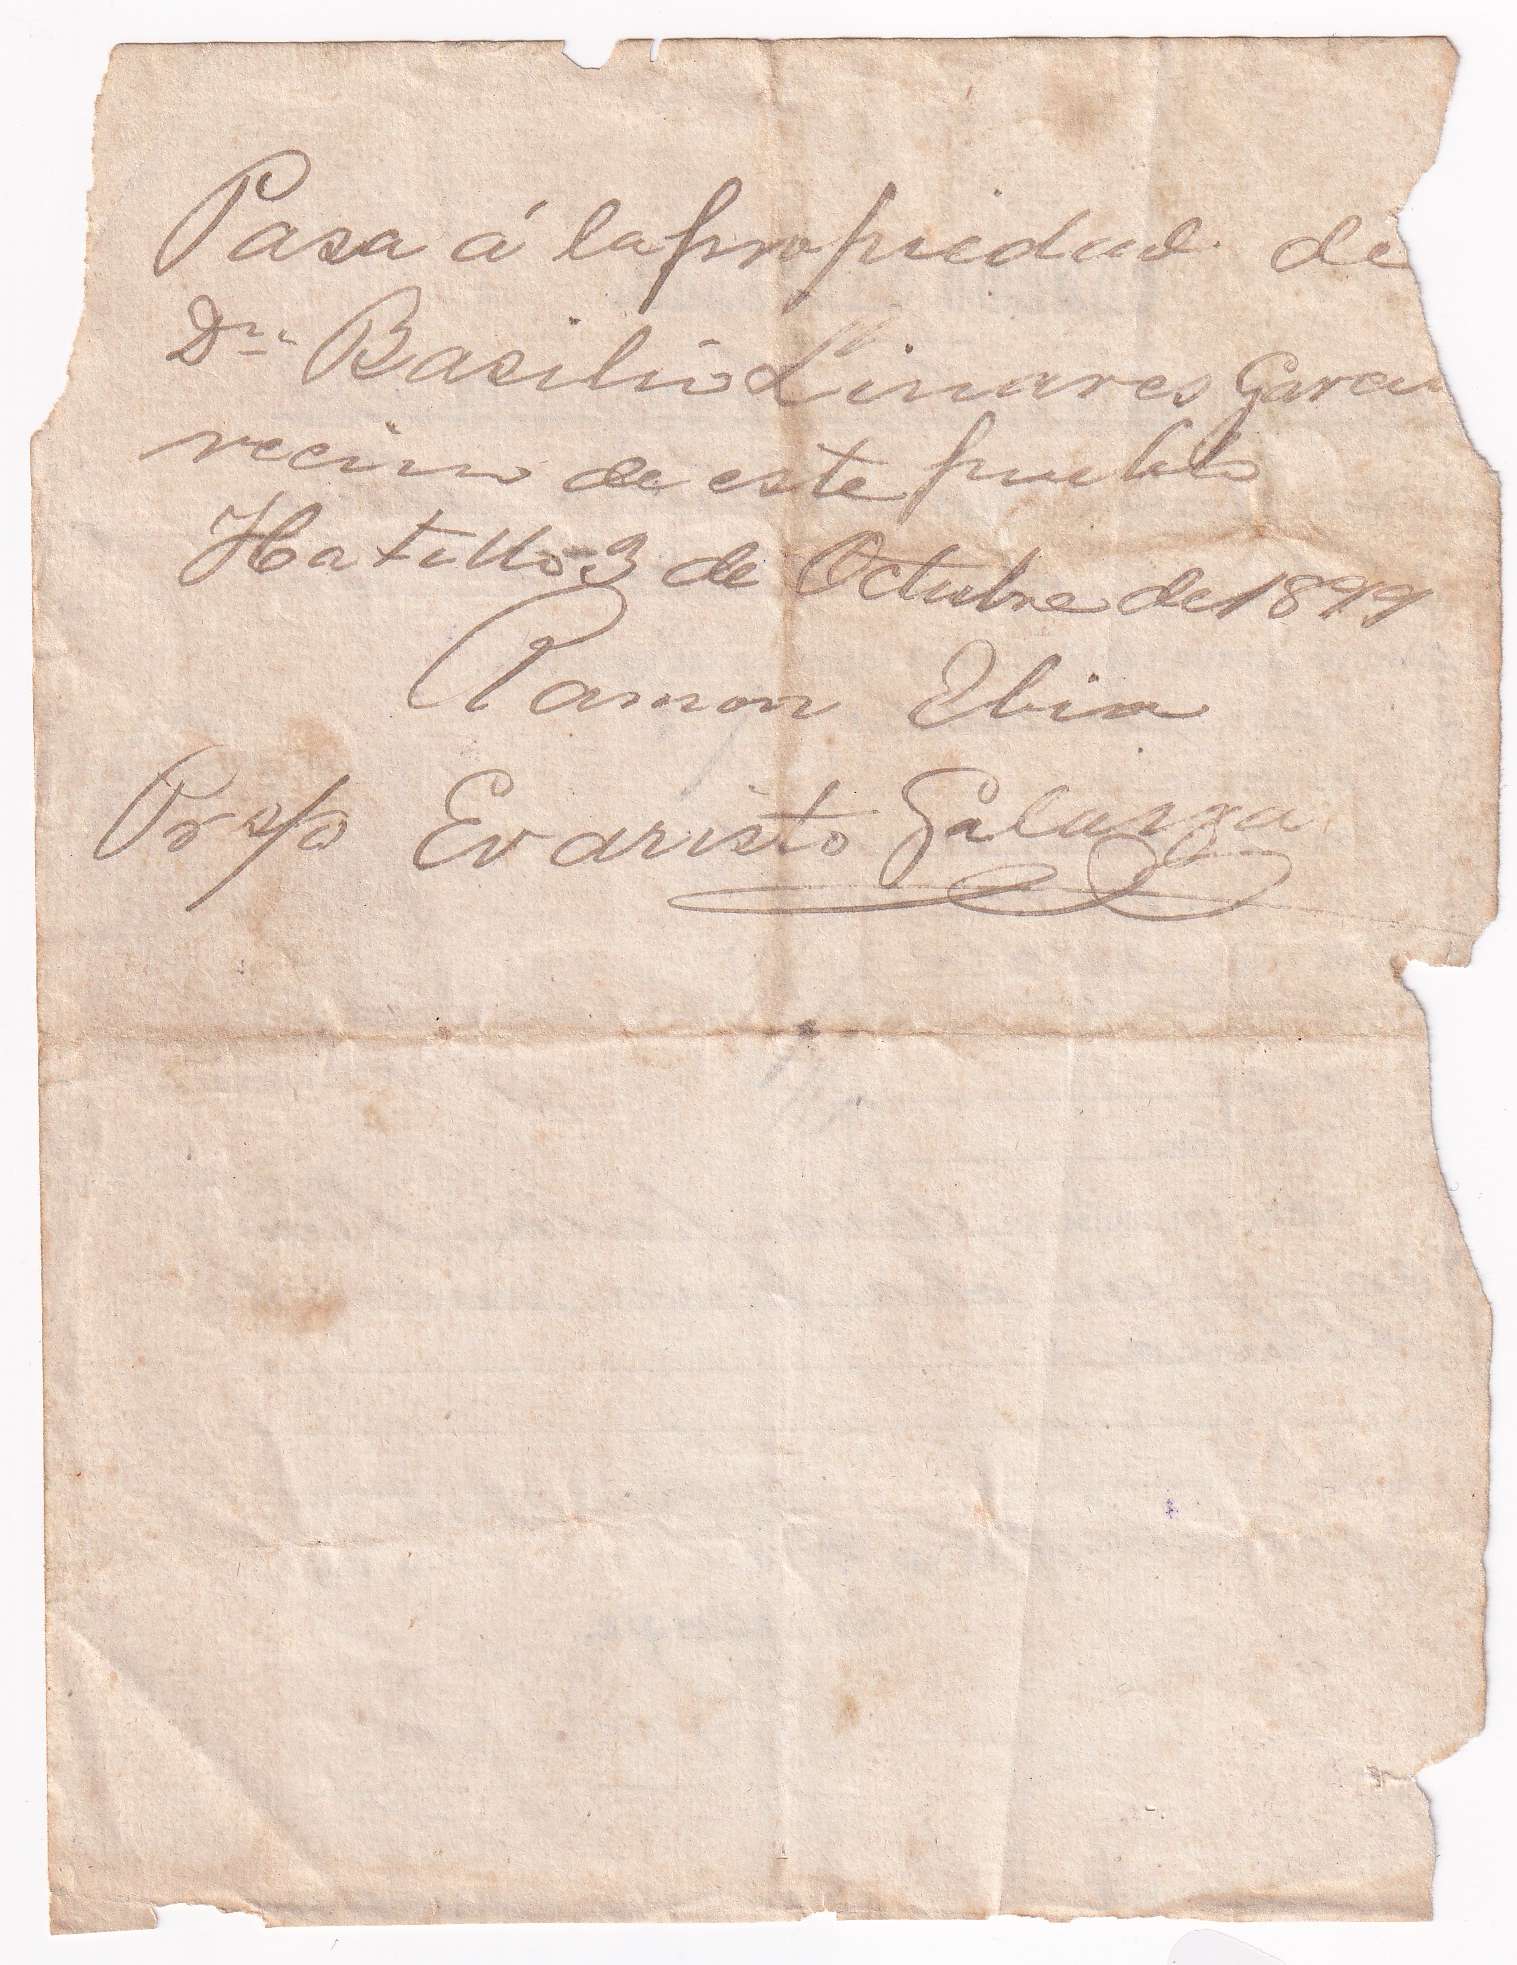 Pasa á la propiedad de
Dn Basilio Linares Garcia
vecino de este pueblo
Hatillo 3 de Octubre de 1899
Ramon
Pr s/o Evaristo Galarza